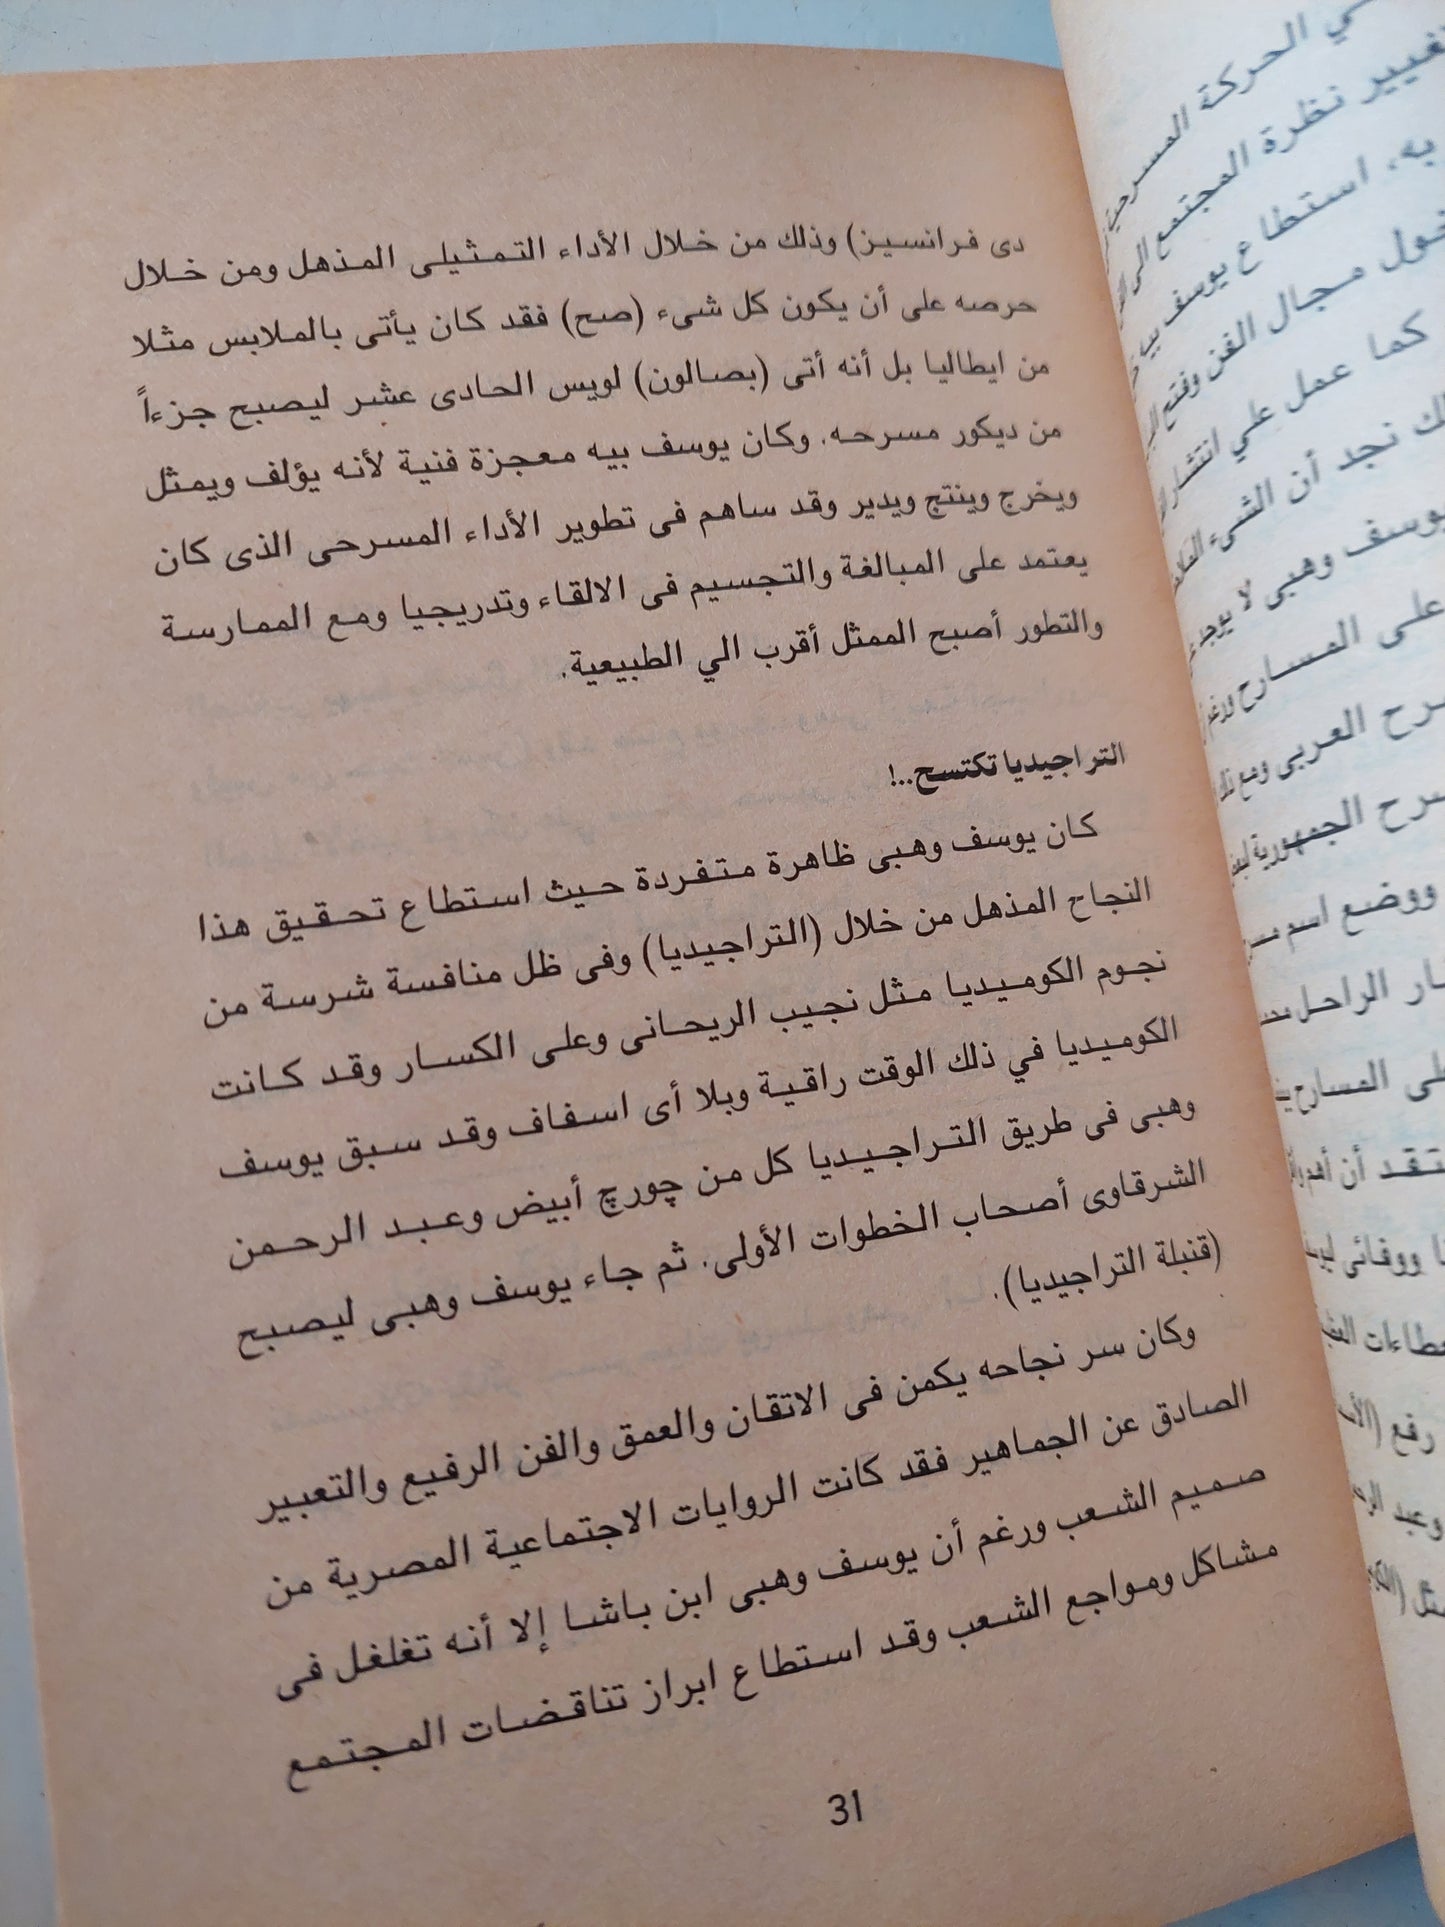 دى فرانسيز) وذلك من خلال الأداء التمثيلى المذهل ومن خلال
حرصه على أن يكون كل شىء (صح) فقد كان يأتى بالملابس مثلا
من ايطاليا بل أنه أتى (بصالون) لويس الحادى عشر ليصبح جزءاً
من ديكور مسرحه. وكان يوسف بيه معجزة فنية لأنه يؤلف ويمثل
ويخرج وينتج ويدير وقد ساهم فى تطوير الأداء المسرحى الذى كان
يعتمد على المبالغة والتجسيم فى الالقاء وتدريجيا ومع الممارسة
والتطور أصبح الممثل أقرب الي الطبيعية.
التراجيديا تكتسح..!
كان يوسف وهبى ظاهرة متفردة حيث استطاع تحقيق هذا
النجاح المذهل من خلال (التراجيديا) وفى ظل منافسة شرسة من
نجوم الكوميديا مثل نجيب الريحانى وعلى الكسار وقد كانت
الكوميديا في ذلك الوقت راقية وبلا أى اسفاف وقد سبق يوسف
وهبى فى طريق التراجيديا كل من چورچ أبيض وعبد الرحمن
الشرقاوى أصحاب الخطوات الأولى. ثم جاء يوسف وهبى ليصبح
(قنبلة التراجيديا).
وكان سر نجاحه يكمن فى الاتقان والعمق والفن الرفيع والتعبير
الصادق عن الجماهير فقد كانت الروايات الاجتماعية المصرية من
صميم الشعب ورغم أن يوسف وهبى ابن باشا إلا أنه تغلغل فى
مشاكل ومواجع الشعب وقد استطاع ابراز تناقضات المجتمع
31
الحركة
تغيير نظرة المجتمع الى
به، استطاع يوسف بيه
مجال الفن وفتح
كما عمل علي انتشار
نجد أن الشىء
يوسف وهبى لا يوجد
على المسارح ورغم
العربى ومع ذلك
الجمهورية
ووضع اسم
الراحل
المسارح
أن أهم
ووفائى
رفع
وعبد